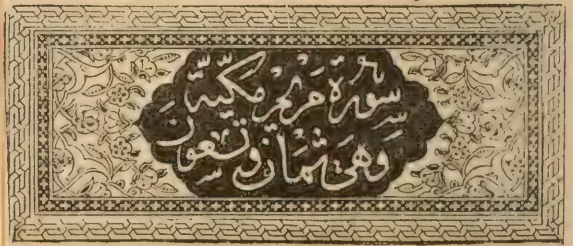 سورة مريم مكية
وهي ثمان وتسعون